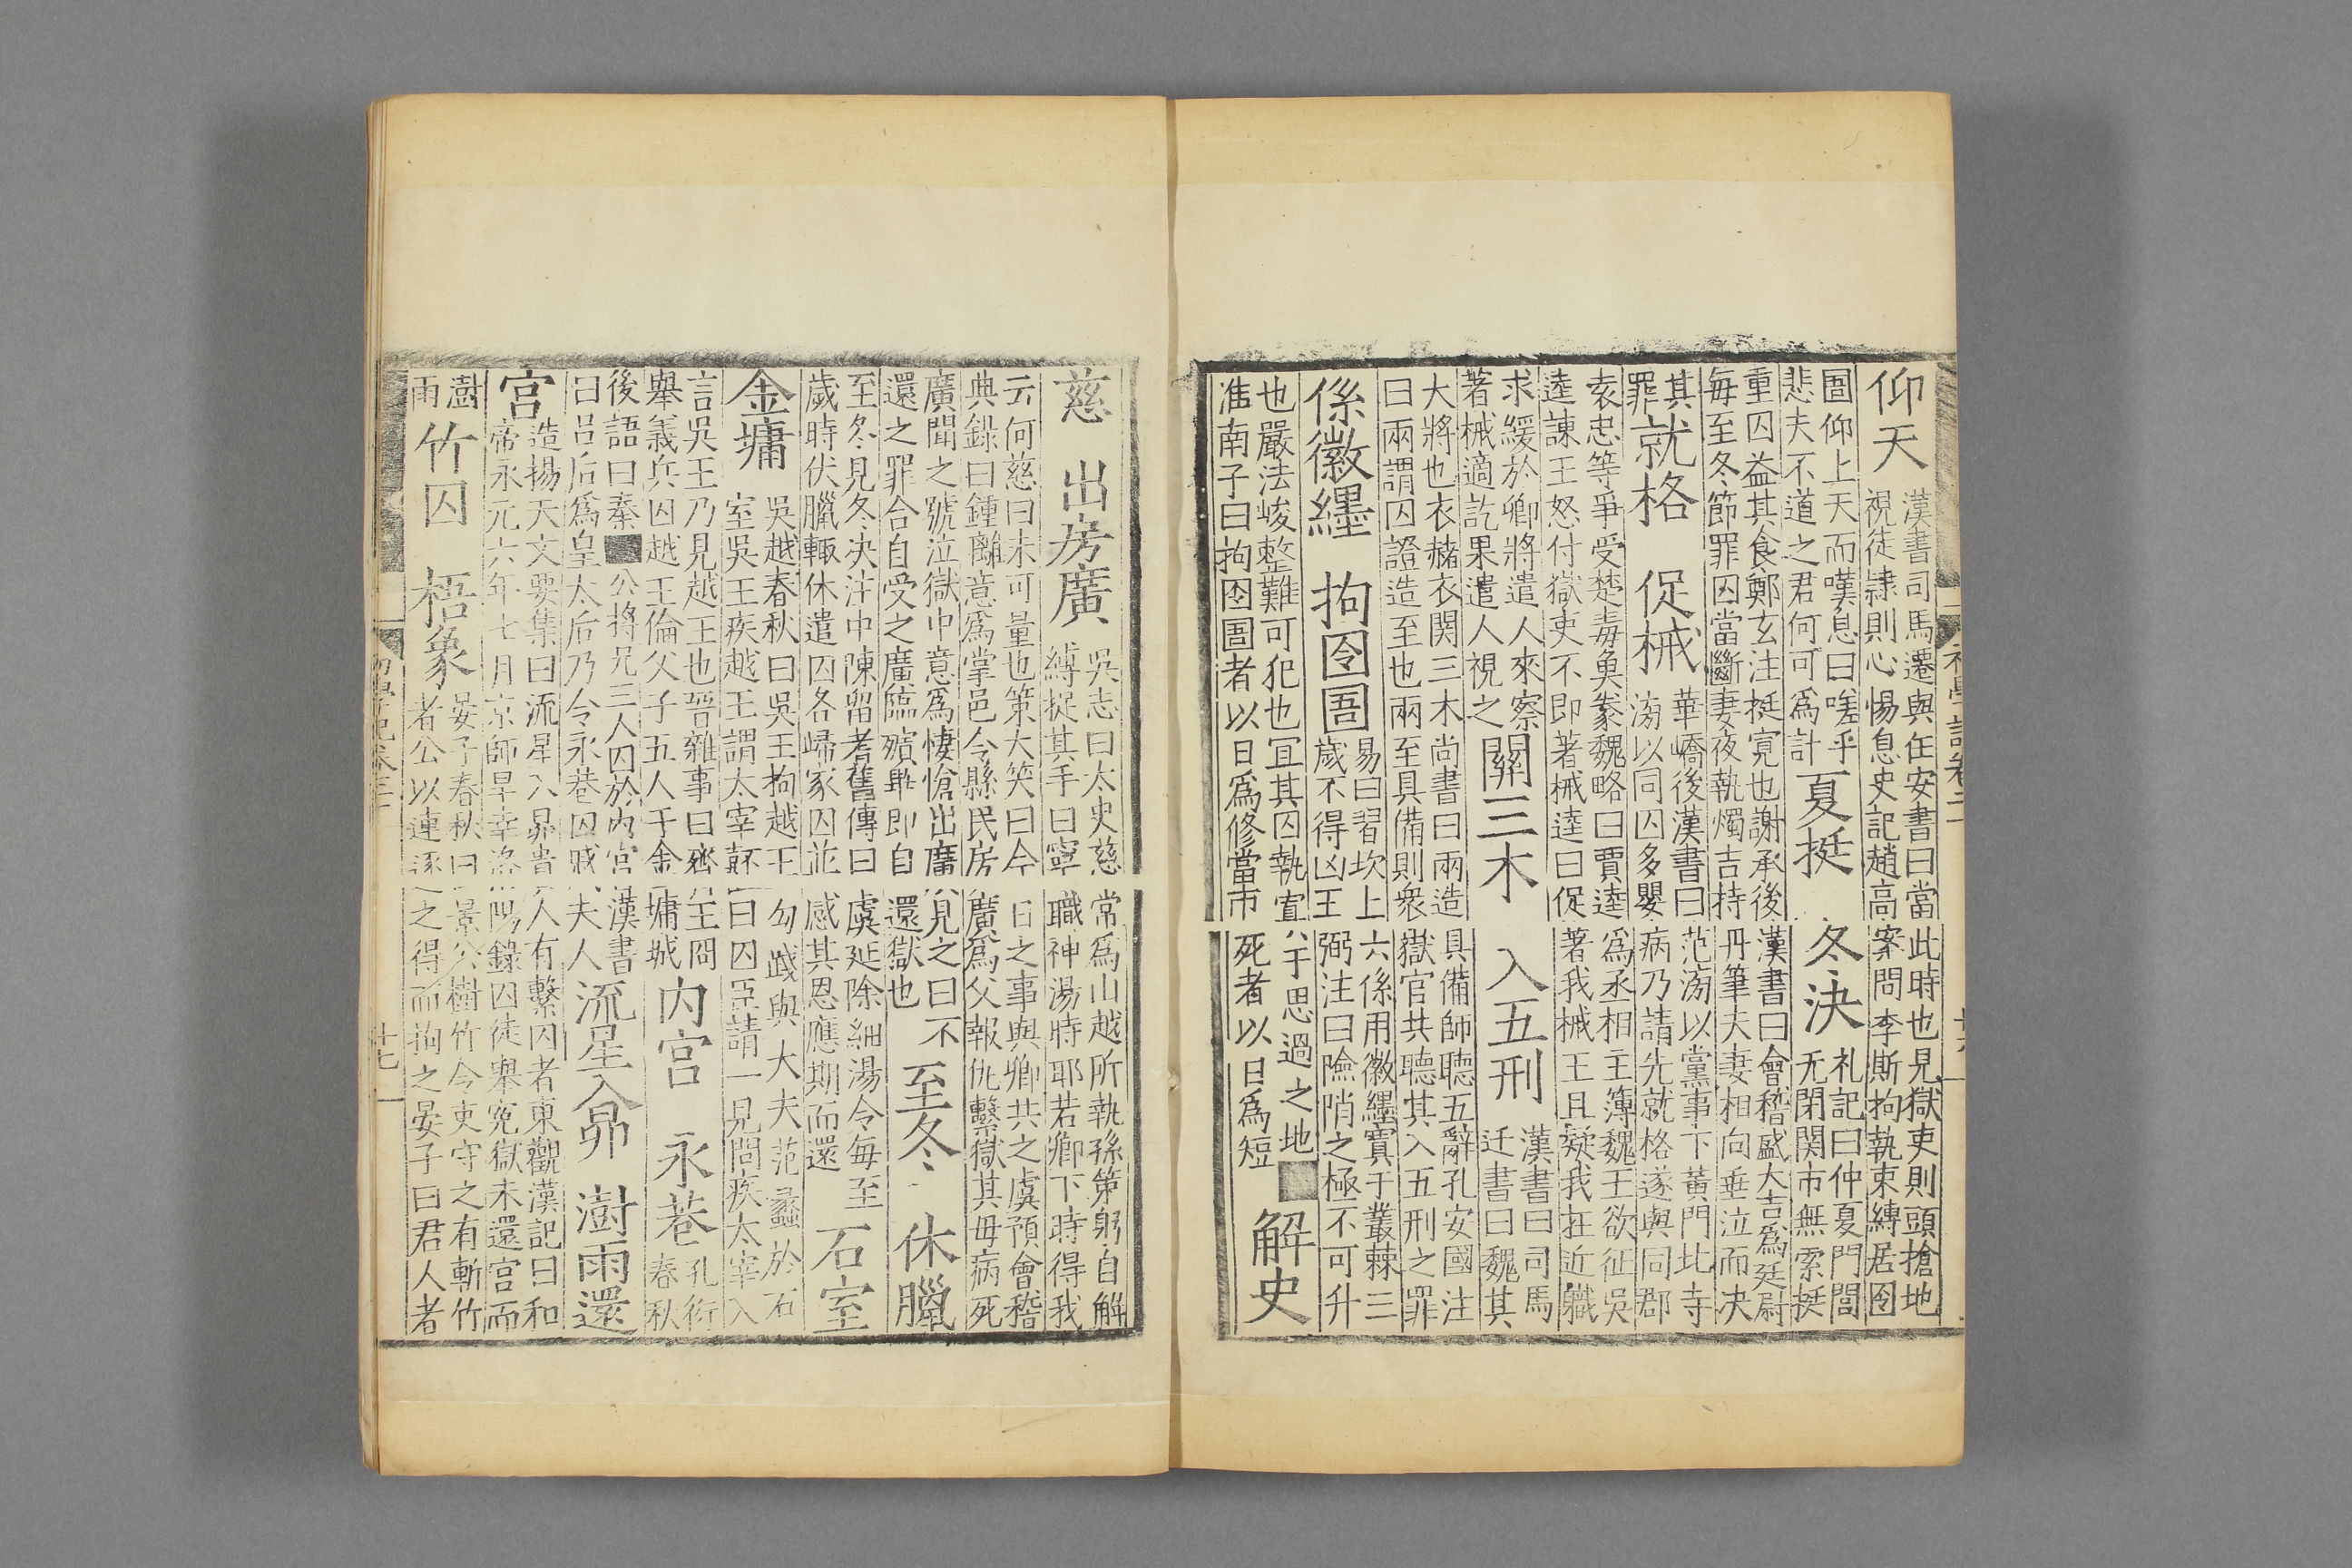 仰天
漢書司馬遷與任安書曰當此時也見獄吏則頭搶地
視徒隸則心惕息史記趙高案問李斯拘執束縛居囹
圄仰上天而嘆息曰嗟乎
悲夫不道之君何可爲計
夏挺 冬決
礼記曰仲夏門閭
无閉関市無索挺
重囚益其食鄭玄注挺寛也謝承後漢書曰會稽盛大吉爲廷尉
每至冬節罪囚當斷妻夜執燭吉持丹筆夫妻相向垂泣而决
其
罪
就格 促械
華嶠後漢書曰范滂以黨事下黃門北寺
滂以同囚多嬰病乃請先就格遂與同郡
袁忠等爭受楚毒魚豢魏略曰賈逵爲丞相主簿魏王欲征吳
逵諫王怒付獄吏不即著械逵曰促著我械王且疑我在近職
求緩於卿將遣人來察
著械適訖果遣人視之
關三木 入五刑
漢書曰司馬
迁書曰魏其
大將也衣赭衣関三木尚書曰兩造具備師聽五辭孔安國注
曰兩謂囚證造至也兩至具備則衆獄官共聽其入五刑之罪
係徽纆 拘囹圄
易曰習坎上六係用徽纆寘于叢棘三
歲不得凶王弼注曰險陗之極不可升
也嚴法峻整難可犯也冝其囚執寘于思過之地
淮南子曰拘囹圄者以日爲修當市死者以日爲短
解史
初學記卷二十
慈 出房廣
吳志曰太史慈常爲山越所執孫策躬自解
縛捉其手曰寧職神湯時耶若卿下時得我
云何慈曰未可量也策大笑曰今日之事與卿共之虞預會稽
典錄曰鍾離意爲掌邑令縣民房廣爲父報仇繫獄其母病死
廣聞之號泣獄中意爲悽愴出廣見之曰不
還之罪合自受之廣臨殯畢即自還獄也
至冬 休臘
至冬見冬决注中陳留耆舊傳曰虞延除細湯令每至
歲時伏臘輙休遣囚各歸家囚並感其恩應期而還
石室
金墉
吳越春秋曰吳王拘越王勾踐與大夫范蠡於石
室吳王疾越王謂太宰嚭曰囚臣請一見問疾太宰入
言吳王乃見越王也晉雜事曰齊王冏
舉義兵囚越王倫父子五人于金墉城
內宮 永巷
孔衍
春秋
後語曰秦公將兄三人囚於內宮漢書
曰呂后爲皇太后乃令永巷囚戚夫人
流星入昴 澍雨還
宮
造揚天文要集曰流星入昴貴人有繫囚者東觀漢記曰和
帝永元六年七月京師旱幸洛陽錄囚徒舉寃獄未還宮而
澍
雨
竹囚 梧象
晏子春秋曰景公樹竹令吏守之有斬竹
者公以連逐之得而拘之晏子曰君人者
初學記卷二十
十七